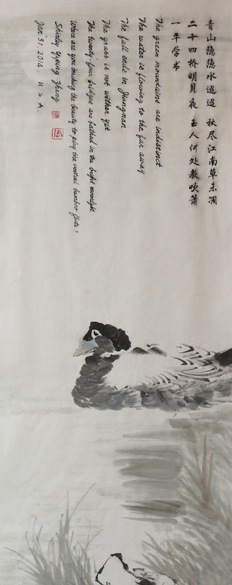 青山隐隐水迢迢 秋尽江南草未凋
二十四桥明月夜 玉人何处教吹箫
一年学书
The green mountains are indistinct
The water is flowing to the far away
The fall ends in Jiangnan
The grass is not wither yet
The twenty-four bridges are bathed in the bright moonlight
Where are you teaching the beauty to play the vertical bamboo flute!
Shirley Yiping Zhang
Jan. 31. 2012. U.S.A